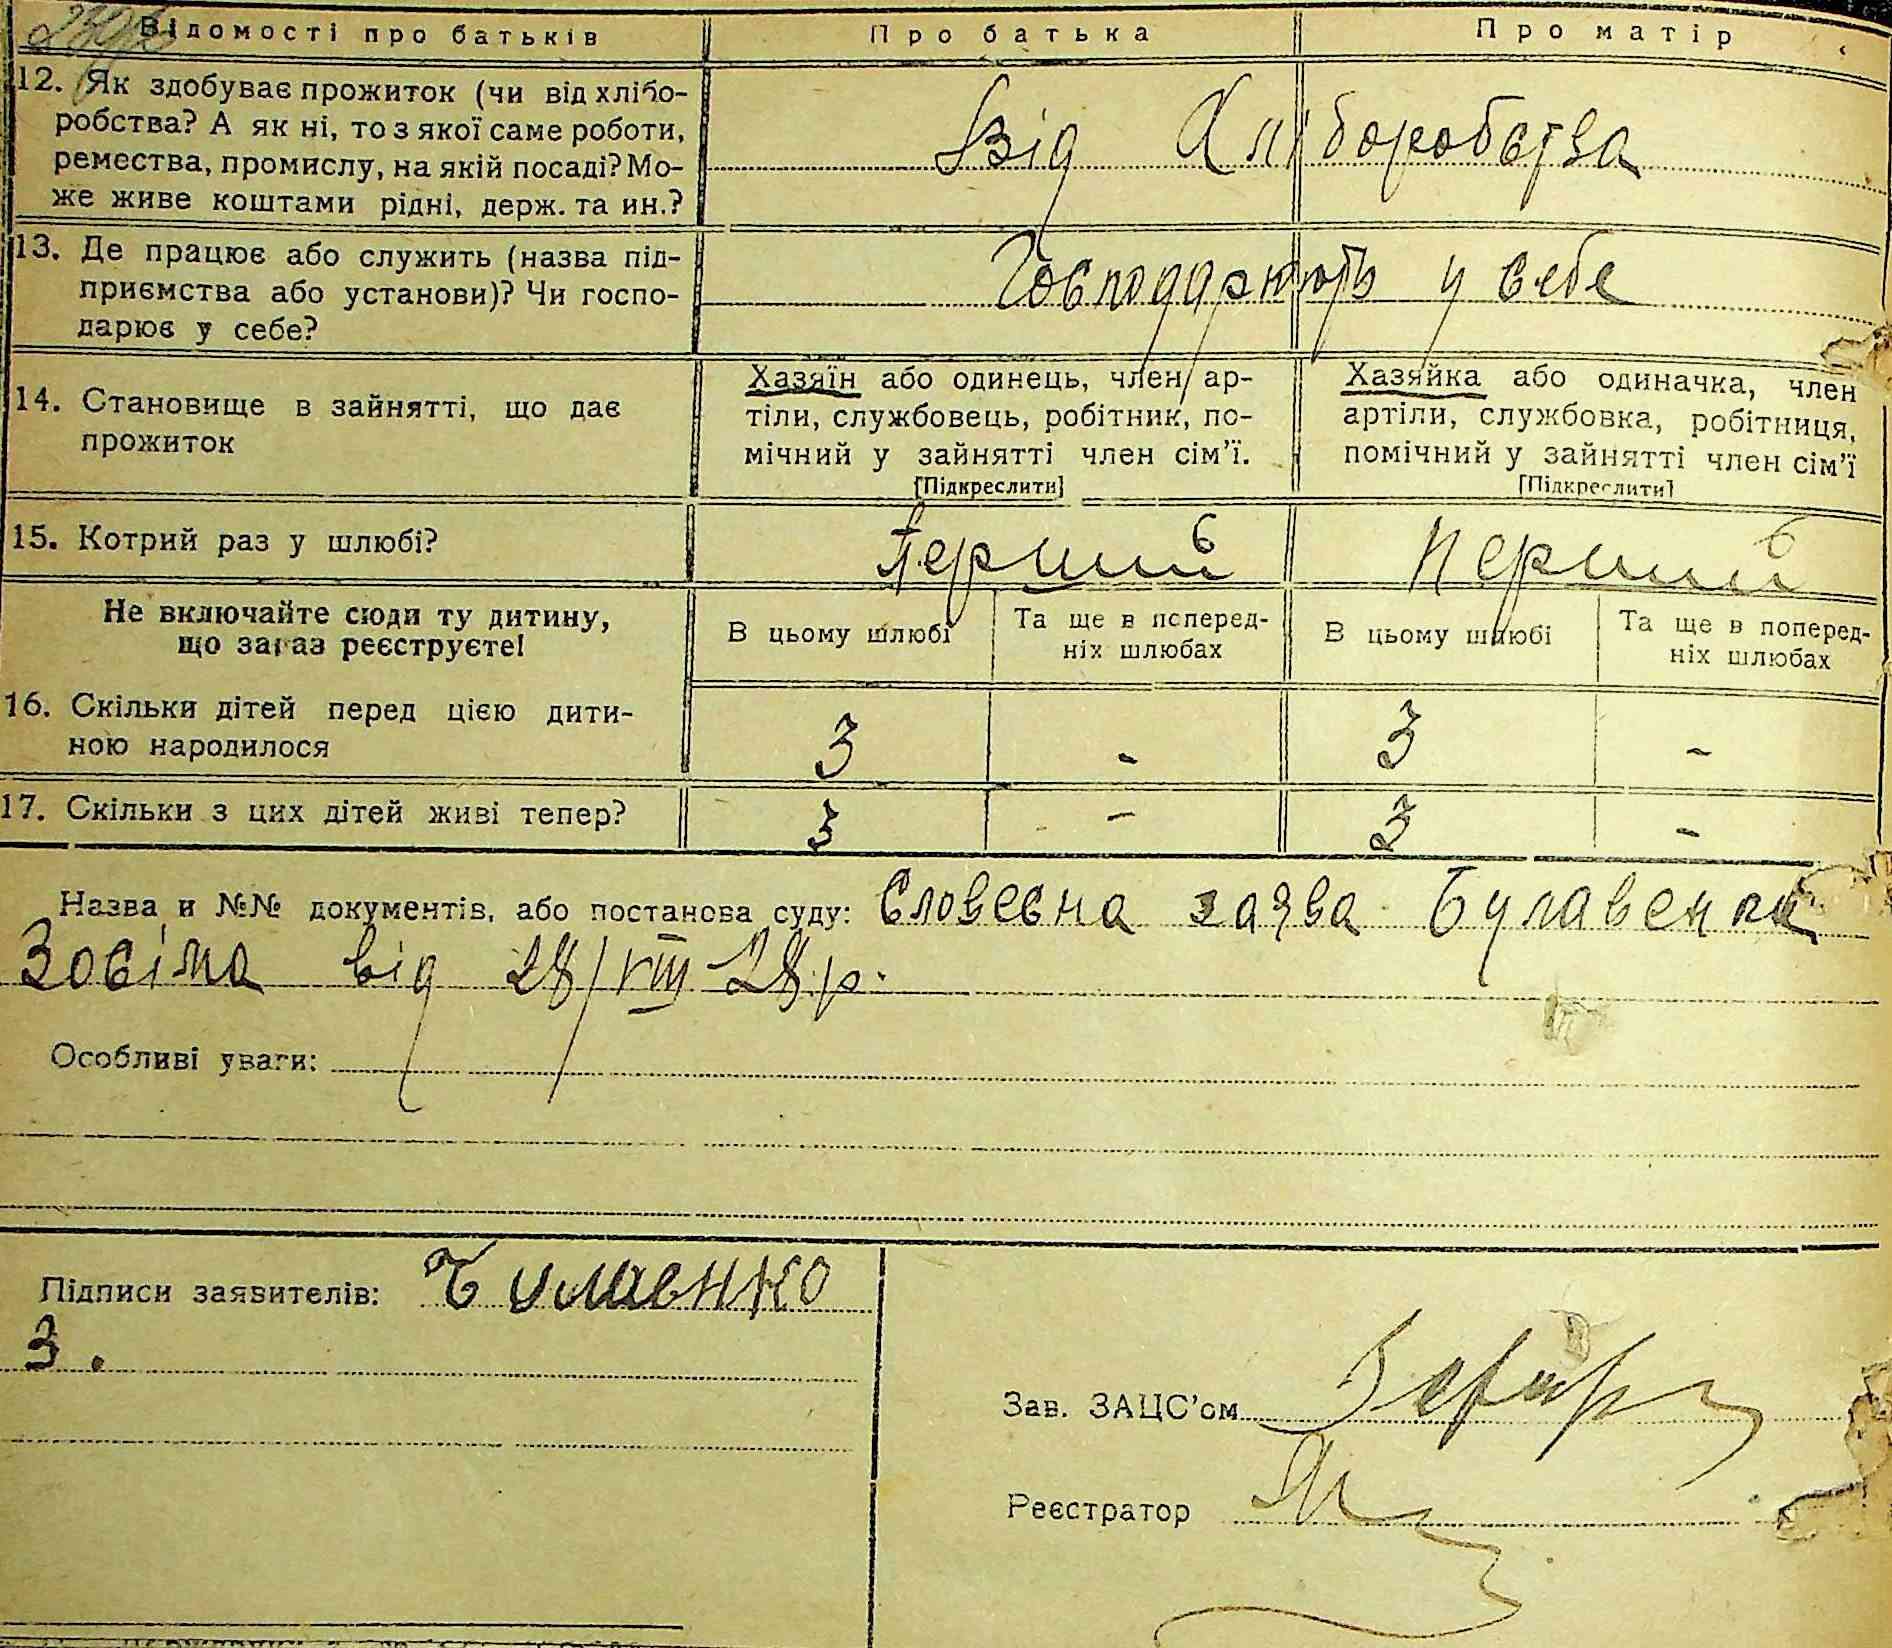 Відомості про батьків
Про батька
Про матір
12. Як здобуває прожиток (чи від хлібо-
робства? А як ні, то з якої саме роботи,
ремества, промислу, на якій посаді? Мо-
же живе коштами рідні, держ. та ин.?
Від Хліборобства
13. Де працює або служить (назва під-
приємства або установи)? Чи госпо-
дарює у себе?
Господарюють у себе
14. Становище в зайнятті, що дає
прожиток
Хазяїн або одинець, член ар-
тіли, службовець, робітник, по-
мічний у зайнятті член сім'ї.
[Підкреслити]
Хазяйка або одиначка, член
артіли, службовка, робітниця,
помічний у зайнятті член сім'ї
[Підкреслити]
15. Котрий раз у шлюбі?
Перший
Перший
Не включайте сюди ту дитину,
що зараз реєструєте!
В цьому шлюбі
Та ще в поперед-
ніх шлюбах
В цьому шлюбі
Та ще в поперед-
ніх шлюбах
16. Скільки дітей перед цією дити-
ною народилося
3
-
3
-
17. Скільки з цих дітей живі тепер?
3
-
3
-
Назва и №№ документів, або постанова суду: Словесна заява Булавенка
Зосіма від 28/VIII 28 р.
Особливі уваги:
Підписи заявителів: Булавенко
З.
Зав. ЗАЦС'ом
Реєстратор